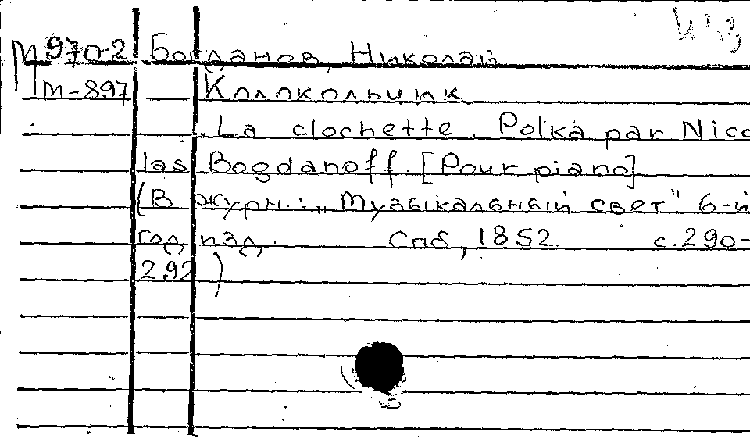 М 970-2 Богданов, Николай
м-897 Колокольчик.
La clochette. Polka par Nico
las Bogdanoff. [Pour piano]
(В журн.: „Музыкальный свет" 6-й
год изд. Спб, 1852. с.290-
292)